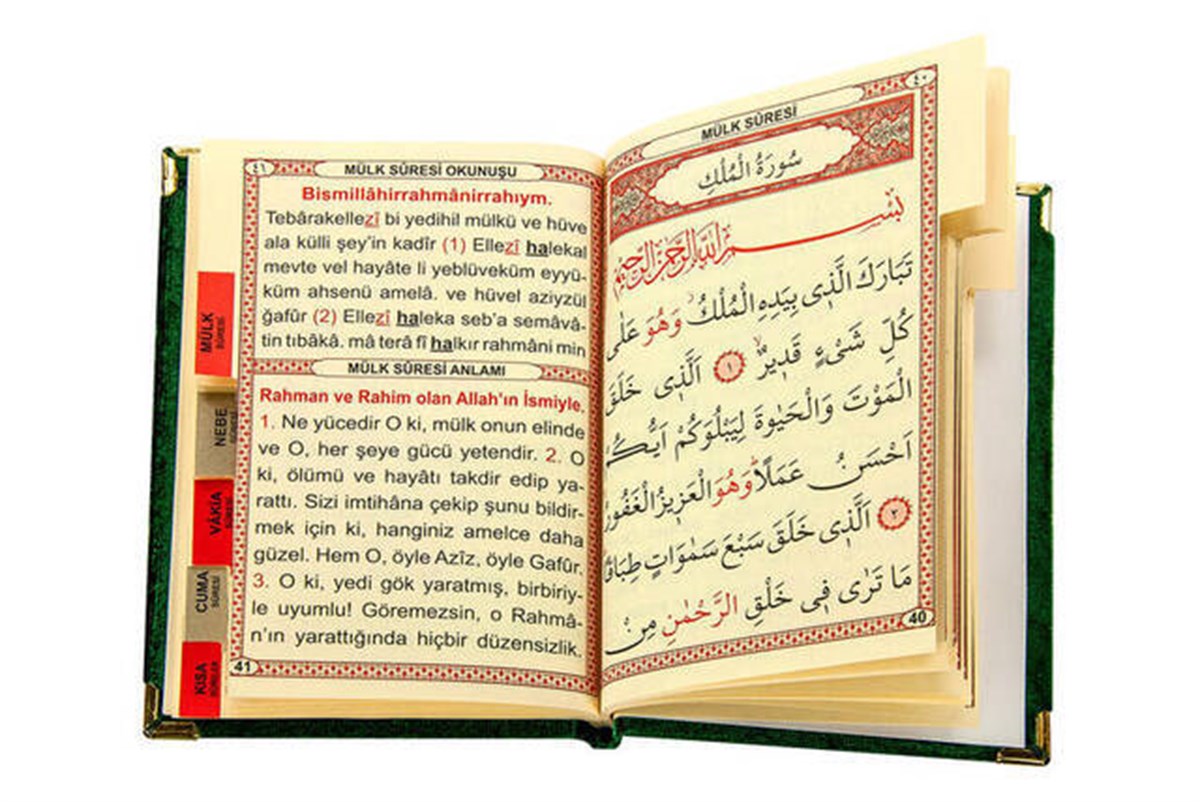 ٤٠
MÜLK SÛRESİ
سُورَةُ الْمُلْكِ
بِسْــــمِ اللّٰهِ الرَّحْمٰنِ الرَّحِيمِ
تَبَارَكَ الَّذٖى بِيَدِهِ الْمُلْكُ وَهُوَ عَلٰى
كُلِّ شَىْءٍ قَدٖيرٌ ١ اَلَّذٖى خَلَقَ
الْمَوْتَ وَالْحَيٰوةَ لِيَبْلُوَكُمْ اَيُّكُمْ
اَحْسَنُ عَمَلًا وَهُوَ الْعَزٖيزُ الْغَفُورُ
٢ اَلَّذٖى خَلَقَ سَبْعَ سَمٰوَاتٍ طِبَاقًا
مَا تَرٰى فٖى خَلْقِ الرَّحْمٰنِ مِنْ
40
٤١
MÜLK SÛRESİ OKUNUŞU
Bismillâhirrahmânirrahıym.
Tebârakellezî bi yedihil mülkü ve hüve
ala külli şey'in kadîr (1) Ellezî halekal
mevte vel hayâte li yeblüveküm eyyü-
küm ahsenü amelâ. ve hüvel aziyzül
ğafûr (2) Ellezî haleka seb'a semâvâ-
tin tıbâkâ. mâ terâ fî halkır rahmâni min
MÜLK SÛRESİ ANLAMI
Rahman ve Rahim olan Allah'ın İsmiyle.
1. Ne yücedir O ki, mülk onun elinde
ve O, her şeye gücü yetendir. 2. O
ki, ölümü ve hayâtı takdir edip ya-
rattı. Sizi imtihâna çekip şunu bildir-
mek için ki, hanginiz amelce daha
güzel. Hem O, öyle Azîz, öyle Gafûr.
3. O ki, yedi gök yaratmış, birbiriy-
le uyumlu! Göremezsin, o Rahmâ-
n'ın yarattığında hiçbir düzensizlik.
41
MÜLK
SÛRESİ
NEBE
SÛRESİ
VÂKIA
SÛRESİ
CUMA
SÛRESİ
KISA
SÛRELER